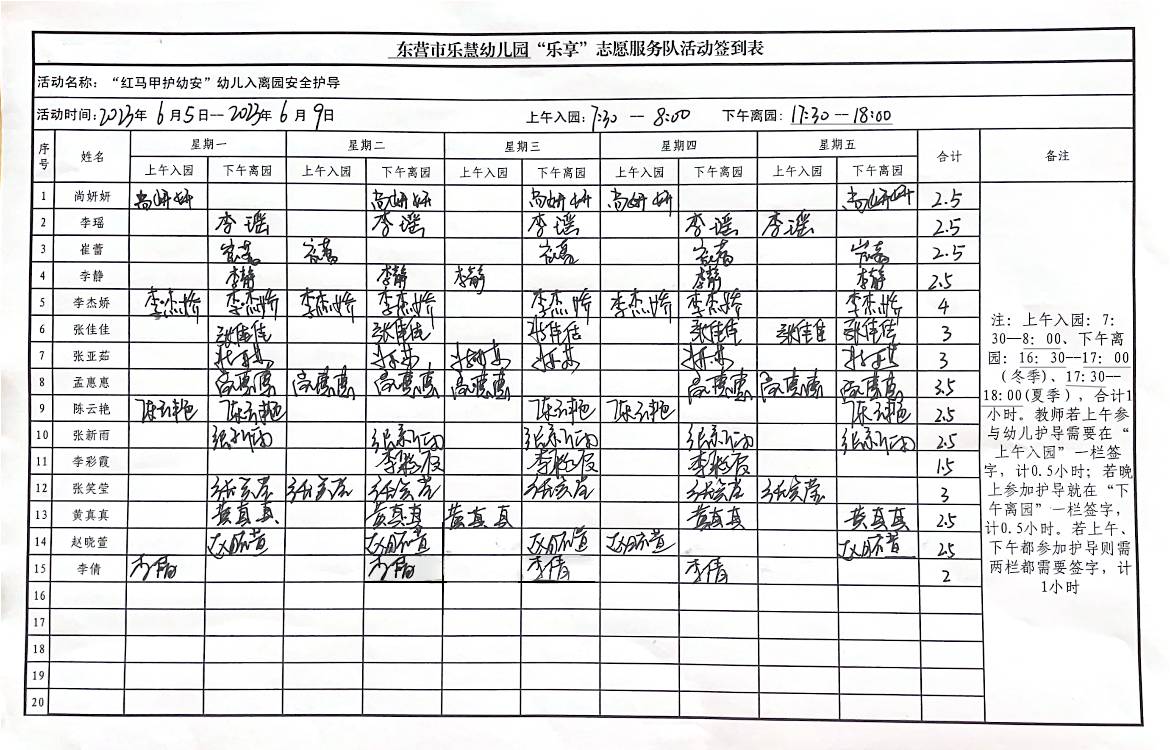 东营市乐慧幼儿园“乐享”志愿服务队活动签到表
活动名称：“红马甲护幼安”幼儿入离园安全护导
活动时间:2023年 6月5日--2023年6月9日 上午入园:7:30 — 8:00 下午离园: 17:30 — 18:00
序号 姓名 星期一 星期二 星期三 星期四 星期五 合计 备注
上午入园 下午离园 上午入园 下午离园 上午入园 下午离园 上午入园 下午离园 上午入园 下午离园
1 尚妍妍 尚妍妍 尚妍妍 尚妍妍 尚妍妍 尚妍妍 2.5
2 李瑶 李瑶 李瑶 李瑶 李瑶 李瑶 2.5
3 崔蕾 崔蕾 崔蕾 崔蕾 崔蕾 崔蕾 2.5
4 李静 李静 李静 李静 李静 李静 2.5
5 李杰娇 李杰娇 李杰娇 李杰娇 李杰娇 李杰娇 李杰娇 李杰娇 李杰娇 4
6 张佳佳 张佳佳 张佳佳 张佳佳 张佳佳 张佳佳 张佳佳 3
7 张亚茹 张亚茹 张亚茹 张亚茹 张亚茹 张亚茹 张亚茹 3
8 孟惠惠 孟惠惠 孟惠惠 孟惠惠 孟惠惠 孟惠惠 孟惠惠 孟惠惠 孟惠惠 3.5
9 陈云艳 陈云艳 陈云艳 陈云艳 陈云艳 陈云艳 2.5
10 张新雨 张新雨 张新雨 张新雨 张新雨 张新雨 2.5
11 李彩霞 李彩霞 李彩霞 李彩霞 1.5
12 张笑莹 张笑莹 张笑莹 张笑莹 张笑莹 张笑莹 张笑莹 3
13 黄真真 黄真真 黄真真 黄真真 黄真真 黄真真 2.5
14 赵晓萱 赵晓萱 赵晓萱 赵晓萱 赵晓萱 赵晓萱 2.5
15 李倩 李倩 李倩 李倩 李倩 2
16
17
18
19
20
注：上午入园：7:
30—8：00、下午离
园：16：30--17：00
(冬季)、17:30—
18:00(夏季），合计1
小时。教师若上午参
与幼儿护导需要在“
上午入园”一栏签
字，计0.5小时；若晚
上参加护导就在“下
午离园”一栏签字，
计0.5小时。若上午、
下午都参加护导则需
两栏都需要签字，计
1小时